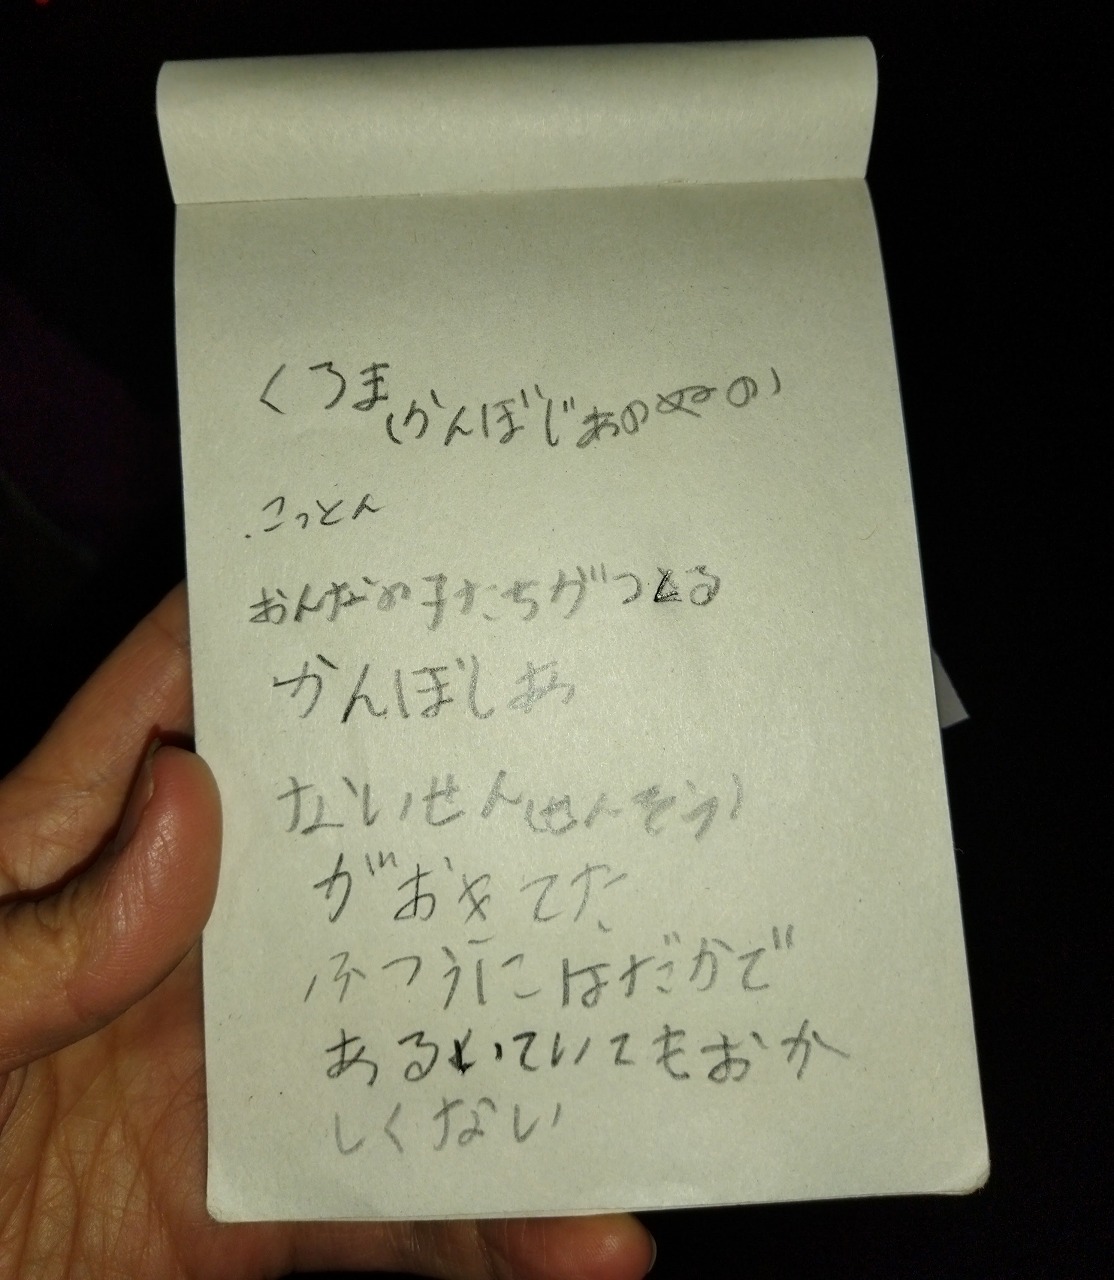 くろま(かんぼじあのぬの)
こっとん
おんなの子たちがつくる
かんぼしあ
ないせん(せんそう)
がおきてた
ふつうにはだかで
あるいていてもおか
しくない